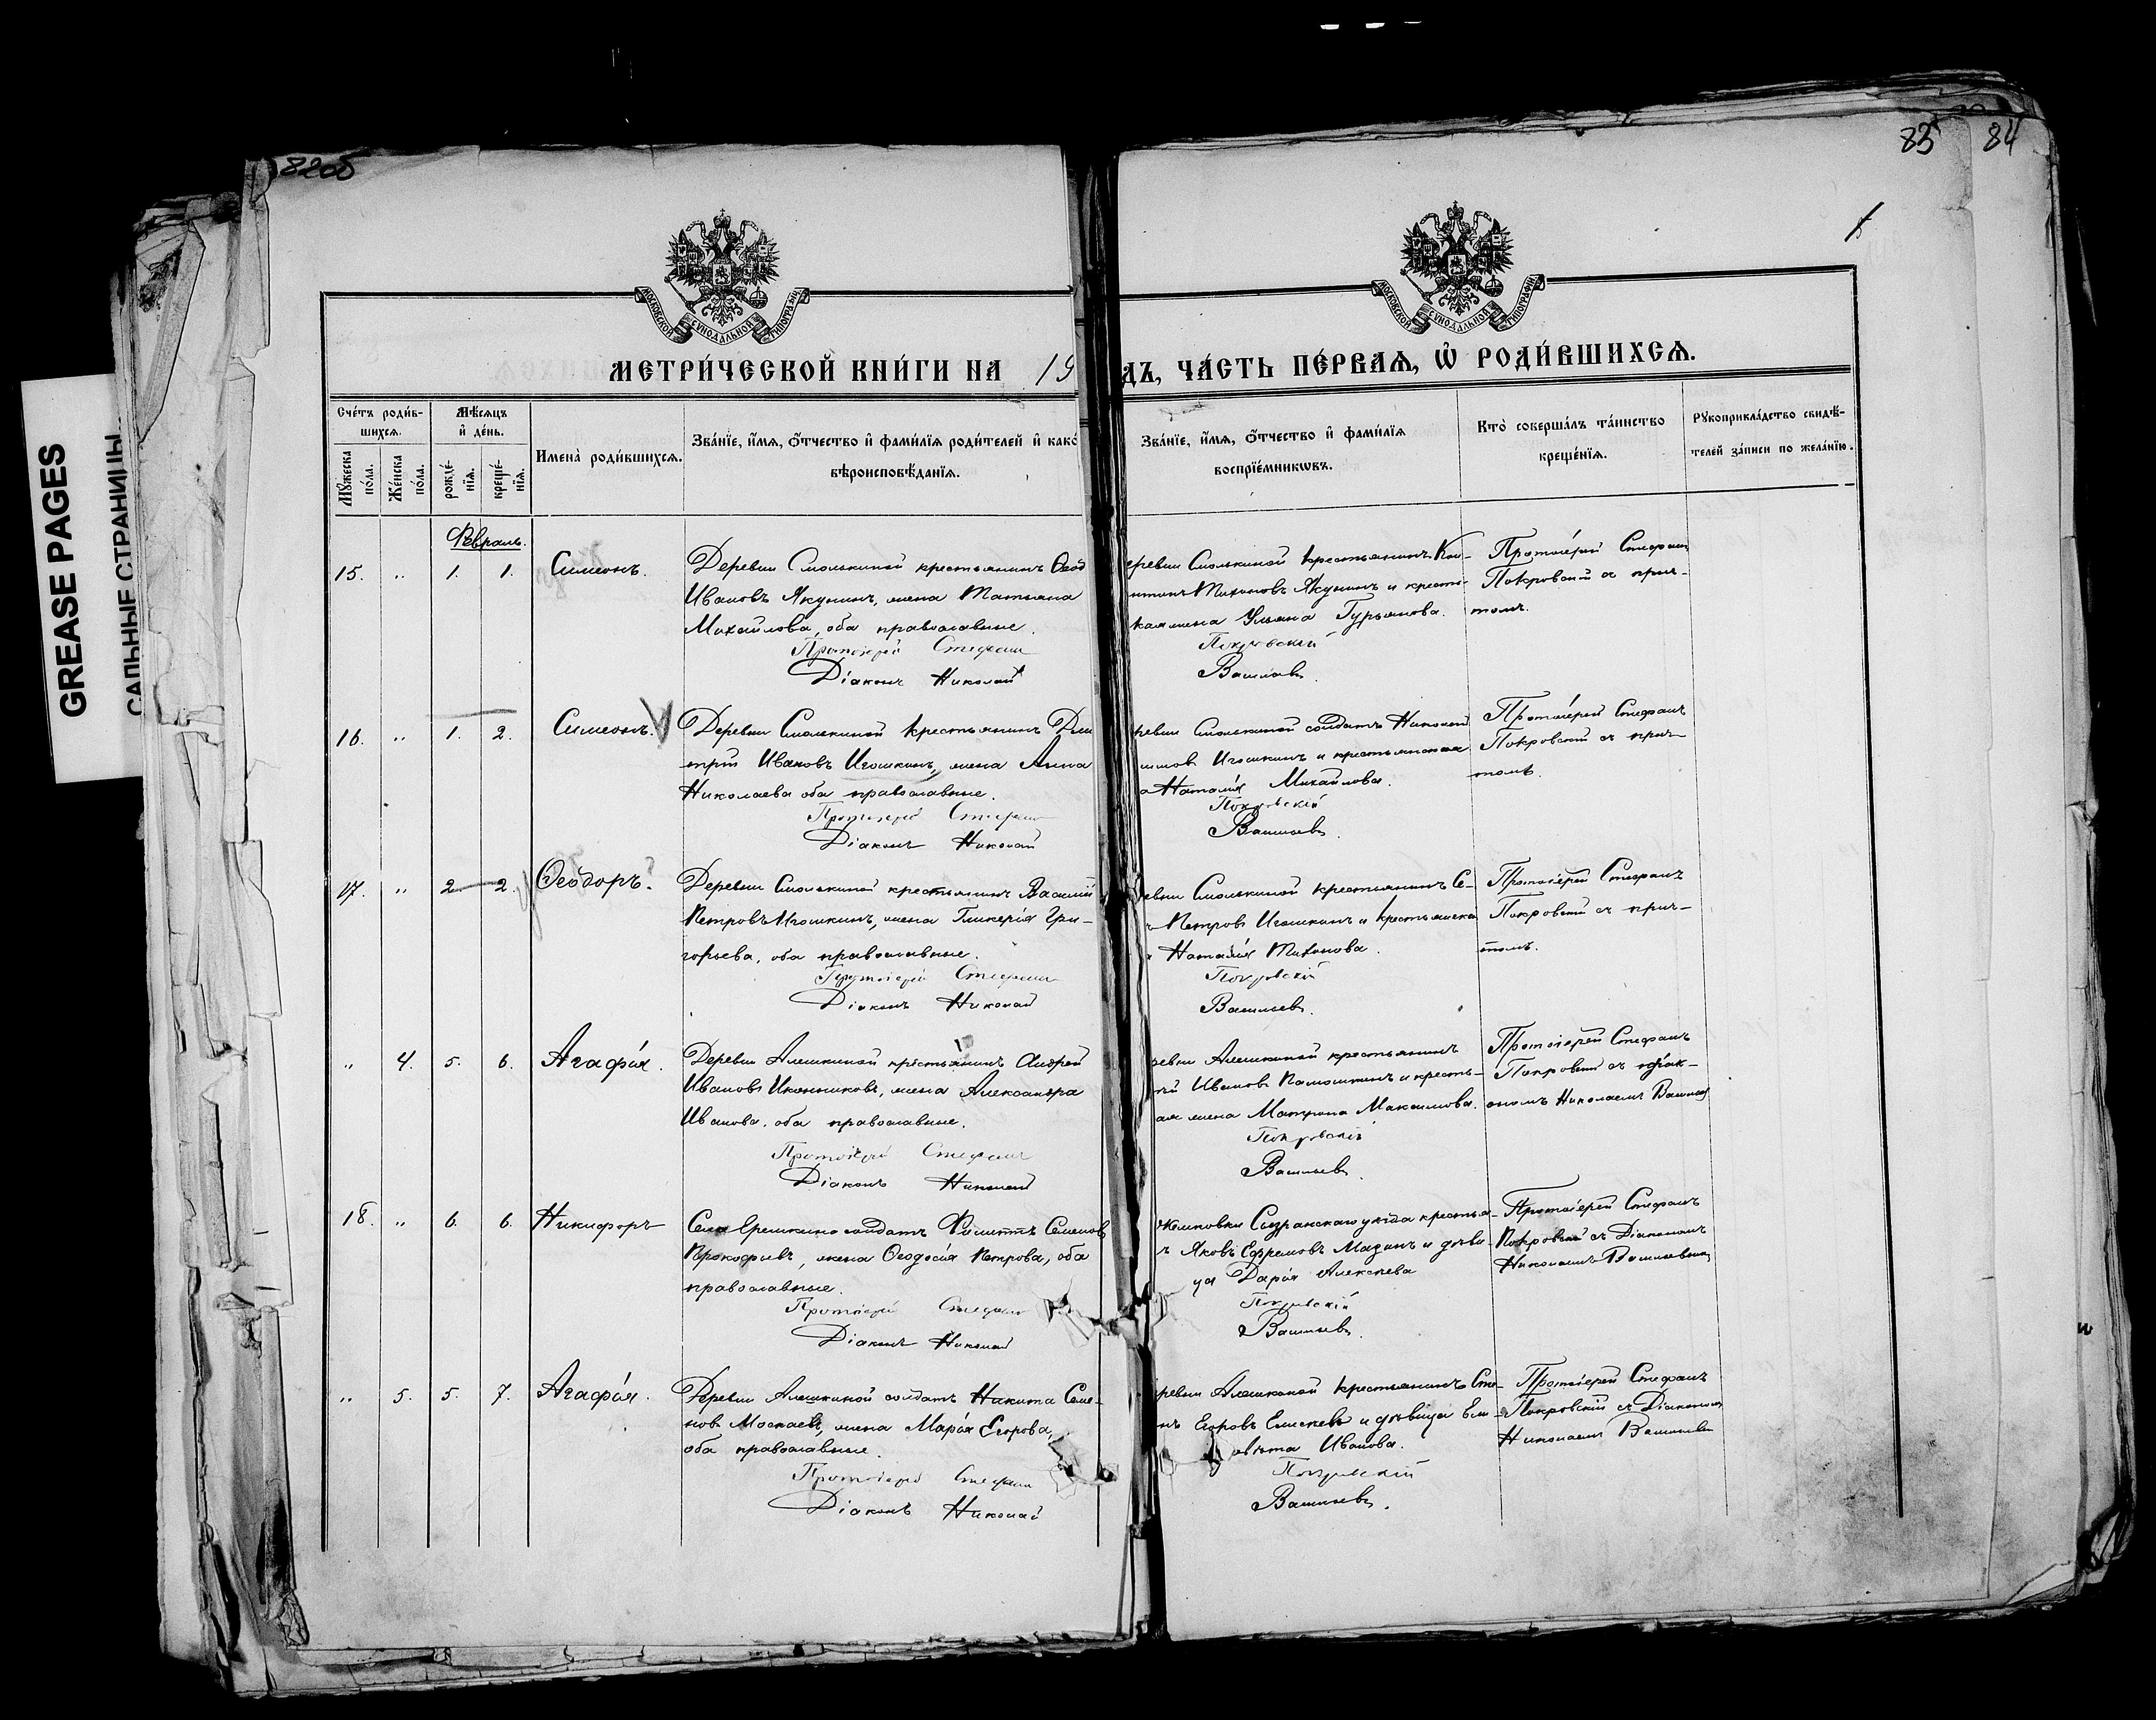 82об
83 84
GREASE PAGES
САЛЬНЫЕ СТРАНИЦЫ
МОСКОВСКОЙ СѴНОДАЛЬНОЙ ТИПОГРАФІИ
МОСКОВСКОЙ СѴНОДАЛЬНОЙ ТИПОГРАФІИ
МЕТРИ́ЧЕСКОЙ КНИ́ГИ НА 19
ДЪ, ЧА́СТЬ ПЕ́РВАѦ, Ѡ҆ РОДИ́ВШИХСѦ.
Сче́тъ роди́в-
шихсѧ.
Му́жеска по́ла.
Же́нска по́ла.
Мѣ́сѧцъ
и҆ де́нь.
рожде́-
нїѧ.
креще́-
нїѧ.
Имена̀ роди́вшихсѧ.
Зва́нїе, и҆́мѧ, ѻ҆́тчество и҆ фами́лїѧ роди́телей и҆ како́
вѣроисповѣ́данїѧ.
Зва́нїе, и҆́мѧ, ѻ҆́тчество и҆ фами́лїѧ
воспрїе́мникѡвъ.
Кто̀ соверша́лъ та́инство
креще́нїѧ.
Рꙋкоприкла́дство свидѣ́-
телей за́писи по жела́нїю.
Февраль.
15. " 1. 1. Симеонъ.
Деревни Смолькиной крестьянинъ Ѳеод
Ивановъ Якунинъ, жена Татьяна
Михайлова, оба православные.
Протоіерей Стефанъ
Діаконъ Николай
еревни Смолькиной крестьянинъ Кон-
Тихоновъ Якунинъ и кресть-
кая жена Ульяна Гурьянова.
Покровскій
Васильевъ.
Протоіерей Стефанъ
Покровскій съ прич-
томъ.
16. " 1. 2. Симеонъ.
Деревни Смолькиной крестьянинъ Дми
трій Ивановъ Игошкинъ, жена Анна
Николаева оба православные.
Протоіерей Стефанъ
Діаконъ Николай
ревни Смолькиной солдатъ Николай
Игошкинъ и крестьянская
а Наталія Михайлова.
Покровскій
Васильевъ.
Протоіерей Стефанъ
Покровскій съ прич-
томъ.
17. " 2 2. Ѳеодоръ.
Деревни Смолькиной крестьянинъ Василій
Петровъ Игошкинъ, жена Гликерія Гри-
горьева, оба православные.
Протоіерей Стефанъ
Діаконъ Николай
евни Смолькиной крестьянинъ Се-
Петровъ Игошкинъ и крестьянска
Наталія Тихонова.
Покровскій
Васильевъ.
Протоіерей Стефанъ
Покровскій съ прич-
томъ.
" 4. 5. 6. Агафія.
Деревни Алешкиной крестьянинъ Андрей
Ивановъ Иконниковъ, жена Александра
Иванова. оба православные.
Протоіерей Стефанъ
Діаконъ Николай
ревни Алешкиной крестьянинъ
Ивановъ и кресть-
ая жена Матрона Максимова.
Покровскій
Васильевъ.
Протоіерей Стефанъ
Покровскій съ діак-
ономъ Николаемъ
18. " 6. 6. Никифоръ
Села Еремкина солдатъ Семеновъ
Прокофьевъ, жена Ѳеодосія Петрова, оба
православные.
Протоіерей Стефанъ
Діаконъ Николай
Сызранскаго уѣзда крестья-
ъ Яковъ Ефремовъ Мазинъ и дѣви-
ца Дарія Алексѣева
Покровскій
Васильевъ.
Протоіерей Стефанъ
Покровскій съ Діакономъ
Николаемъ Васильевымъ
" 5. 5. 7. Агафія.
Деревни Алешкиной солдатъ Никита Семе-
новъ Моткаевъ, жена Марія Егорова,
оба православные.
Протоіерей Стефанъ
Діаконъ Николай
ревни Алешкиной крестьянинъ Сте-
нъ Егоровъ и дѣвица Ели-
авѣта Иванова.
Покровскій
Васильевъ.
Протоіерей Стефанъ
Покровскій съ Діакономъ
Николаемъ